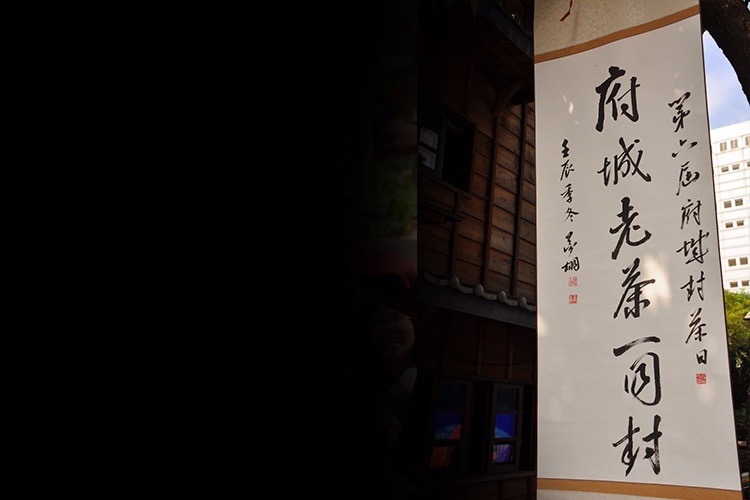 第六屆府城封茶日
府城老茶一同封
壬辰季冬